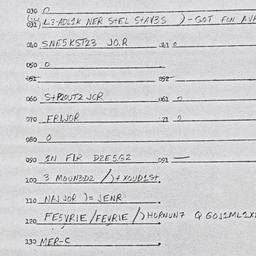 030 0
031) L3-ADL1K NER StEL StAV3S )-GOT FON AVA
040 SNE5KST23 JO.R 041 0
050 0
052 052
060 S+P2OUT2 JCR 061 0
070 FRWJOR 0
080 0
090 IN FLR D2E5.G2 091 —
100 3 MOUN3D2 /)+XOUD1St
110 NAJ JOR )= JENR
120 FESVRIE/FEVRIE/)HORNUN7 Q GOJ1ML2X
130 MER-C